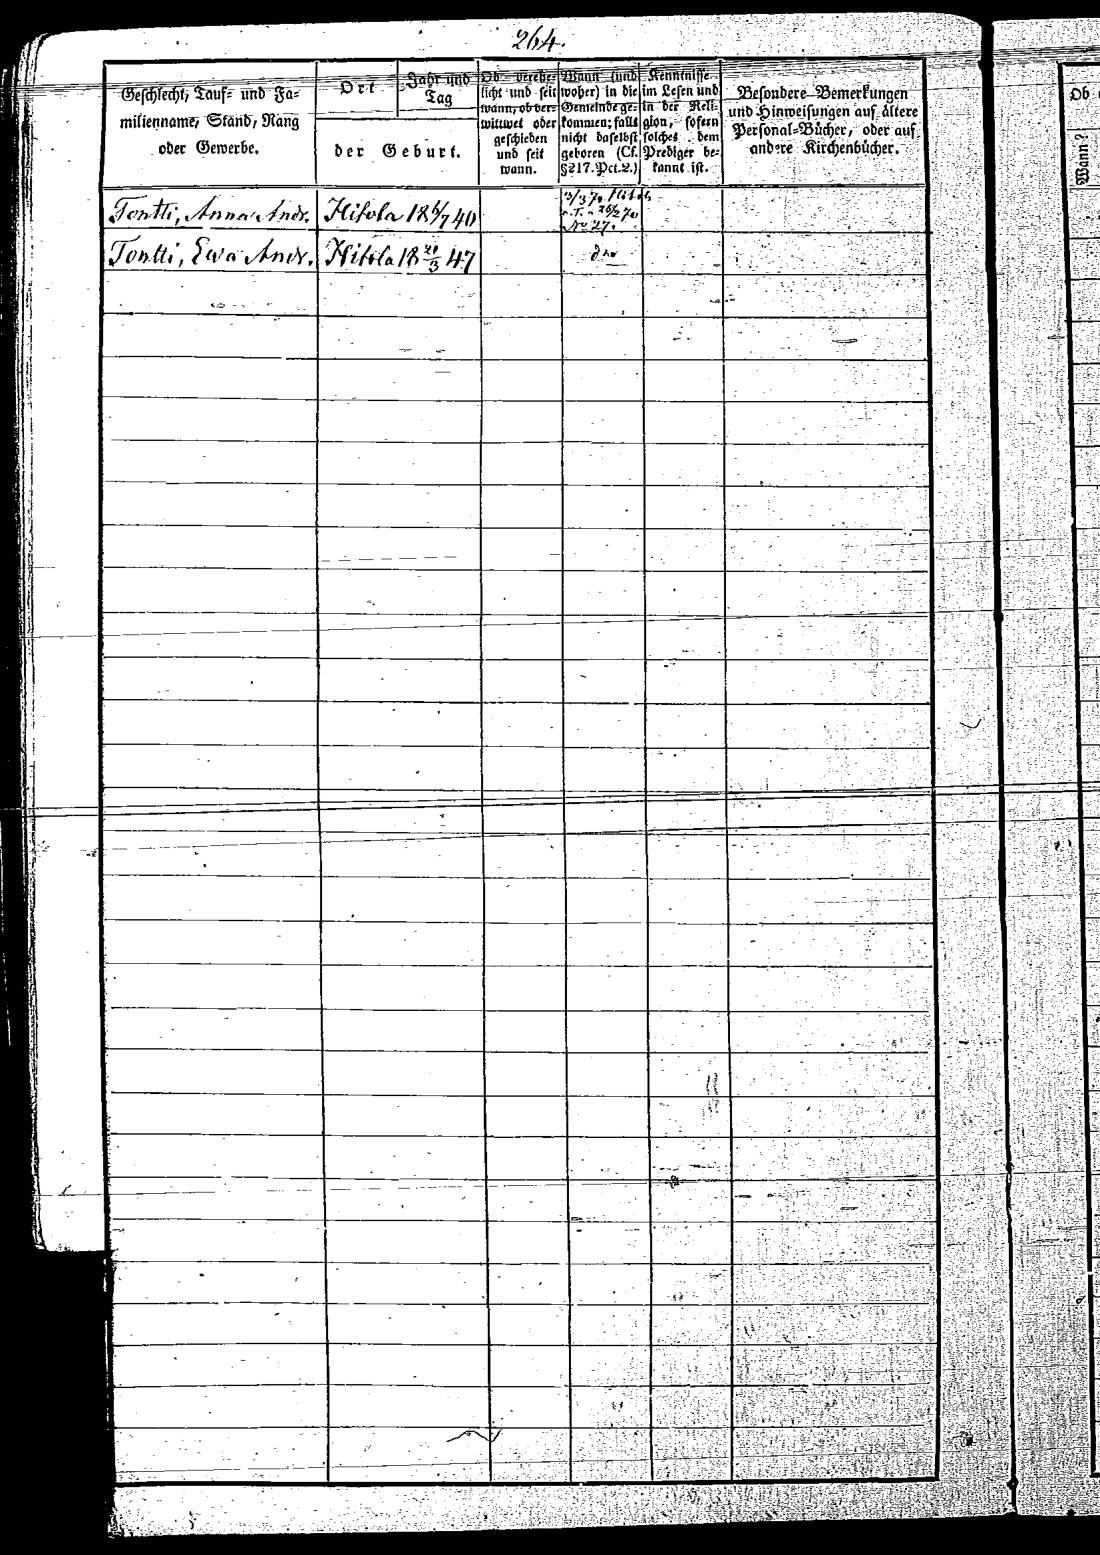 264.
Geschlecht, Tauf- und Fa-
milienname, Stand, Rang
oder Gewerbe.
Ort
Jahr und
Tag
der Geburt.
Ob verehe-
licht und seit
wann, ob ver-
wittwet oder
geschieden
und seit
wann.
Wann (und
woher) in die
Gemeinde ge-
kommen; falls
nicht daselbst
geboren (Cf.
§217. Pct. 2.)
Kenntnisse
im Lesen und
in der Reli-
gion, sofern
solches dem
Prediger be-
kannt ist.
Besondere Bemerkungen
und Hinweisungen auf ältere
Personal-Bücher, oder auf
andere Kirchenbücher.
Tontti, Anna Andr. Hitola 18 6/7 40
3/3 70 Hitola
26/2 70
No 27.
Tontti, Ewa Andr. Hitola 18 20/3 47
Ob
Wann?